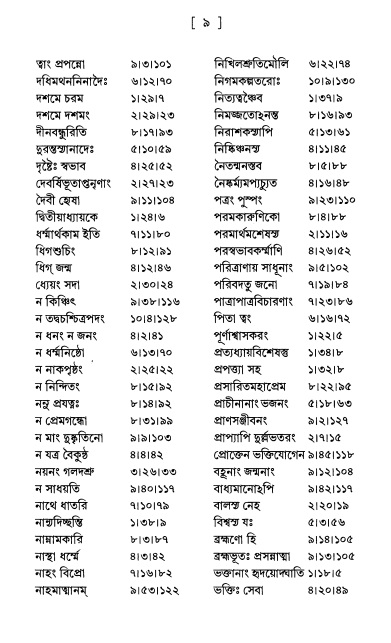 [ ৯ ]
ত্বাং প্রপন্নো ৯।৩।১০১
দধিমথননিনাদৈঃ ৬।১২।৭০
দশমে চরম ১।২৯।৭
দশমে দশমং ২।২৯।২৩
দীনবন্ধুরিতি ৮।১৭।৯৩
দুরন্তস্যানাদেঃ ৫।১০।৫৯
দৃষ্টৈঃ স্বভাব ৪।২৫।৫২
দেবর্ষিভূতাপ্তনৃণাং ২।২৭।২৩
দৈবী হ্যেষা ৯।১১।১০৪
দ্বিতীয়াধ্যায়কে ১।২৪।৬
ধর্ম্মার্থকাম ইতি ৭।১১।৮০
ধিগশুচিং ৮।১২।৯১
ধিগ্ জন্ম ৪।১২।৪৬
ধ্যেয়ং সদা ২।৩০।২৪
ন কিঞ্চিৎ ৯।৩৮।১১৬
ন তদ্বচশ্চিত্রপদং ১০।৪।১২৮
ন ধনং ন জনং ৪।২।৪১
ন ধর্ম্মনিষ্ঠো ৬।১৩।৭০
ন নাকপৃষ্ঠং ২।২৫।২২
ন নিন্দিতং ৮।১৫।৯২
ননু প্রযত্নঃ ৮।১৪।৯২
ন প্রেমগন্ধো ৮।৩১।৯৯
ন মাং দুষ্কৃতিনো ৯।৯।১০৩
ন যত্র বৈকুণ্ঠ ৪।৪।৪২
নয়নং গলদশ্রু ৩।২৬।৩৩
ন সাধয়তি ৯।৪০।১১৭
নাথে ধাতরি ৭।১০।৭৯
নান্যদিচ্ছন্তি ১।৩৮।৯
নাম্নামকারি ৮।৩।৮৭
নাস্থা ধর্ম্মে ৪।৩।৪২
নাহং বিপ্রো ৭।১৬।৮২
নাহমাত্মানম্ ৯।৫৩।১২২
নিখিলশ্রুতিমৌলি ৬।২২।৭৪
নিগমকল্পতরোঃ ১০।৯।১৩০
নিত্যত্বঞ্চৈব ১।৩৭।৯
নিমজ্জতোঽনন্ত ৮।১৬।৯৩
নিরাশকস্যাপি ৫।১৩।৬১
নিষ্কিঞ্চনস্য ৪।১১।৪৫
নৈতন্মনস্তব ৮।৫।৮৮
নৈষ্কর্ম্যমপ্যচ্যুত ৪।১৬।৪৮
পত্রং পুষ্পং ৯।২৩।১১০
পরমকারুণিকো ৮।৪।৮৮
পরমার্থমশেষস্য ২।১১।১৬
পরস্বভাবকর্ম্মাণি ৪।২৬।৫২
পরিত্রাণায় সাধূনাং ৯।৫।১০২
পরিবদতু জনো ৭।১৯।৮৪
পাত্রাপাত্রবিচারণাং ৭।২৩।৮৬
পিতা ত্বং ৬।১৬।৭২
পূর্ণাশ্বাসকরং ১।২২।৫
প্রত্যধ্যায়বিশেষস্তু ১।৩৪।৮
প্রপত্ত্যা সহ ১।৩২।৮
প্রসারিতমহাপ্রেম ৮।২২।৯৫
প্রাচীনানাং ভজনং ৫।১৮।৬৩
প্রাণসঞ্জীবনং ৯।২।১২৭
প্রাপ্যাপি দুর্ল্লভতরং ২।৭।১৫
প্রোক্তেন ভক্তিযোগেন ৯।৪৫।১১৮
বহূনাং জন্মনাং ৯।১২।১০৪
বাধ্যমানোঽপি ৯।৪২।১১৭
বালস্য নেহ ২।২০।১৯
বিশ্বস্য যঃ ৫।৩।৫৬
ব্রহ্মণো হি ৯।১৪।১০৫
ব্রহ্মভূতঃ প্রসন্নাত্মা ৯।১৩।১০৫
ভক্তানাং হৃদয়োদ্ঘাতি ১।১৮।৫
ভক্তিঃ সেবা ৪।২০।৪৯